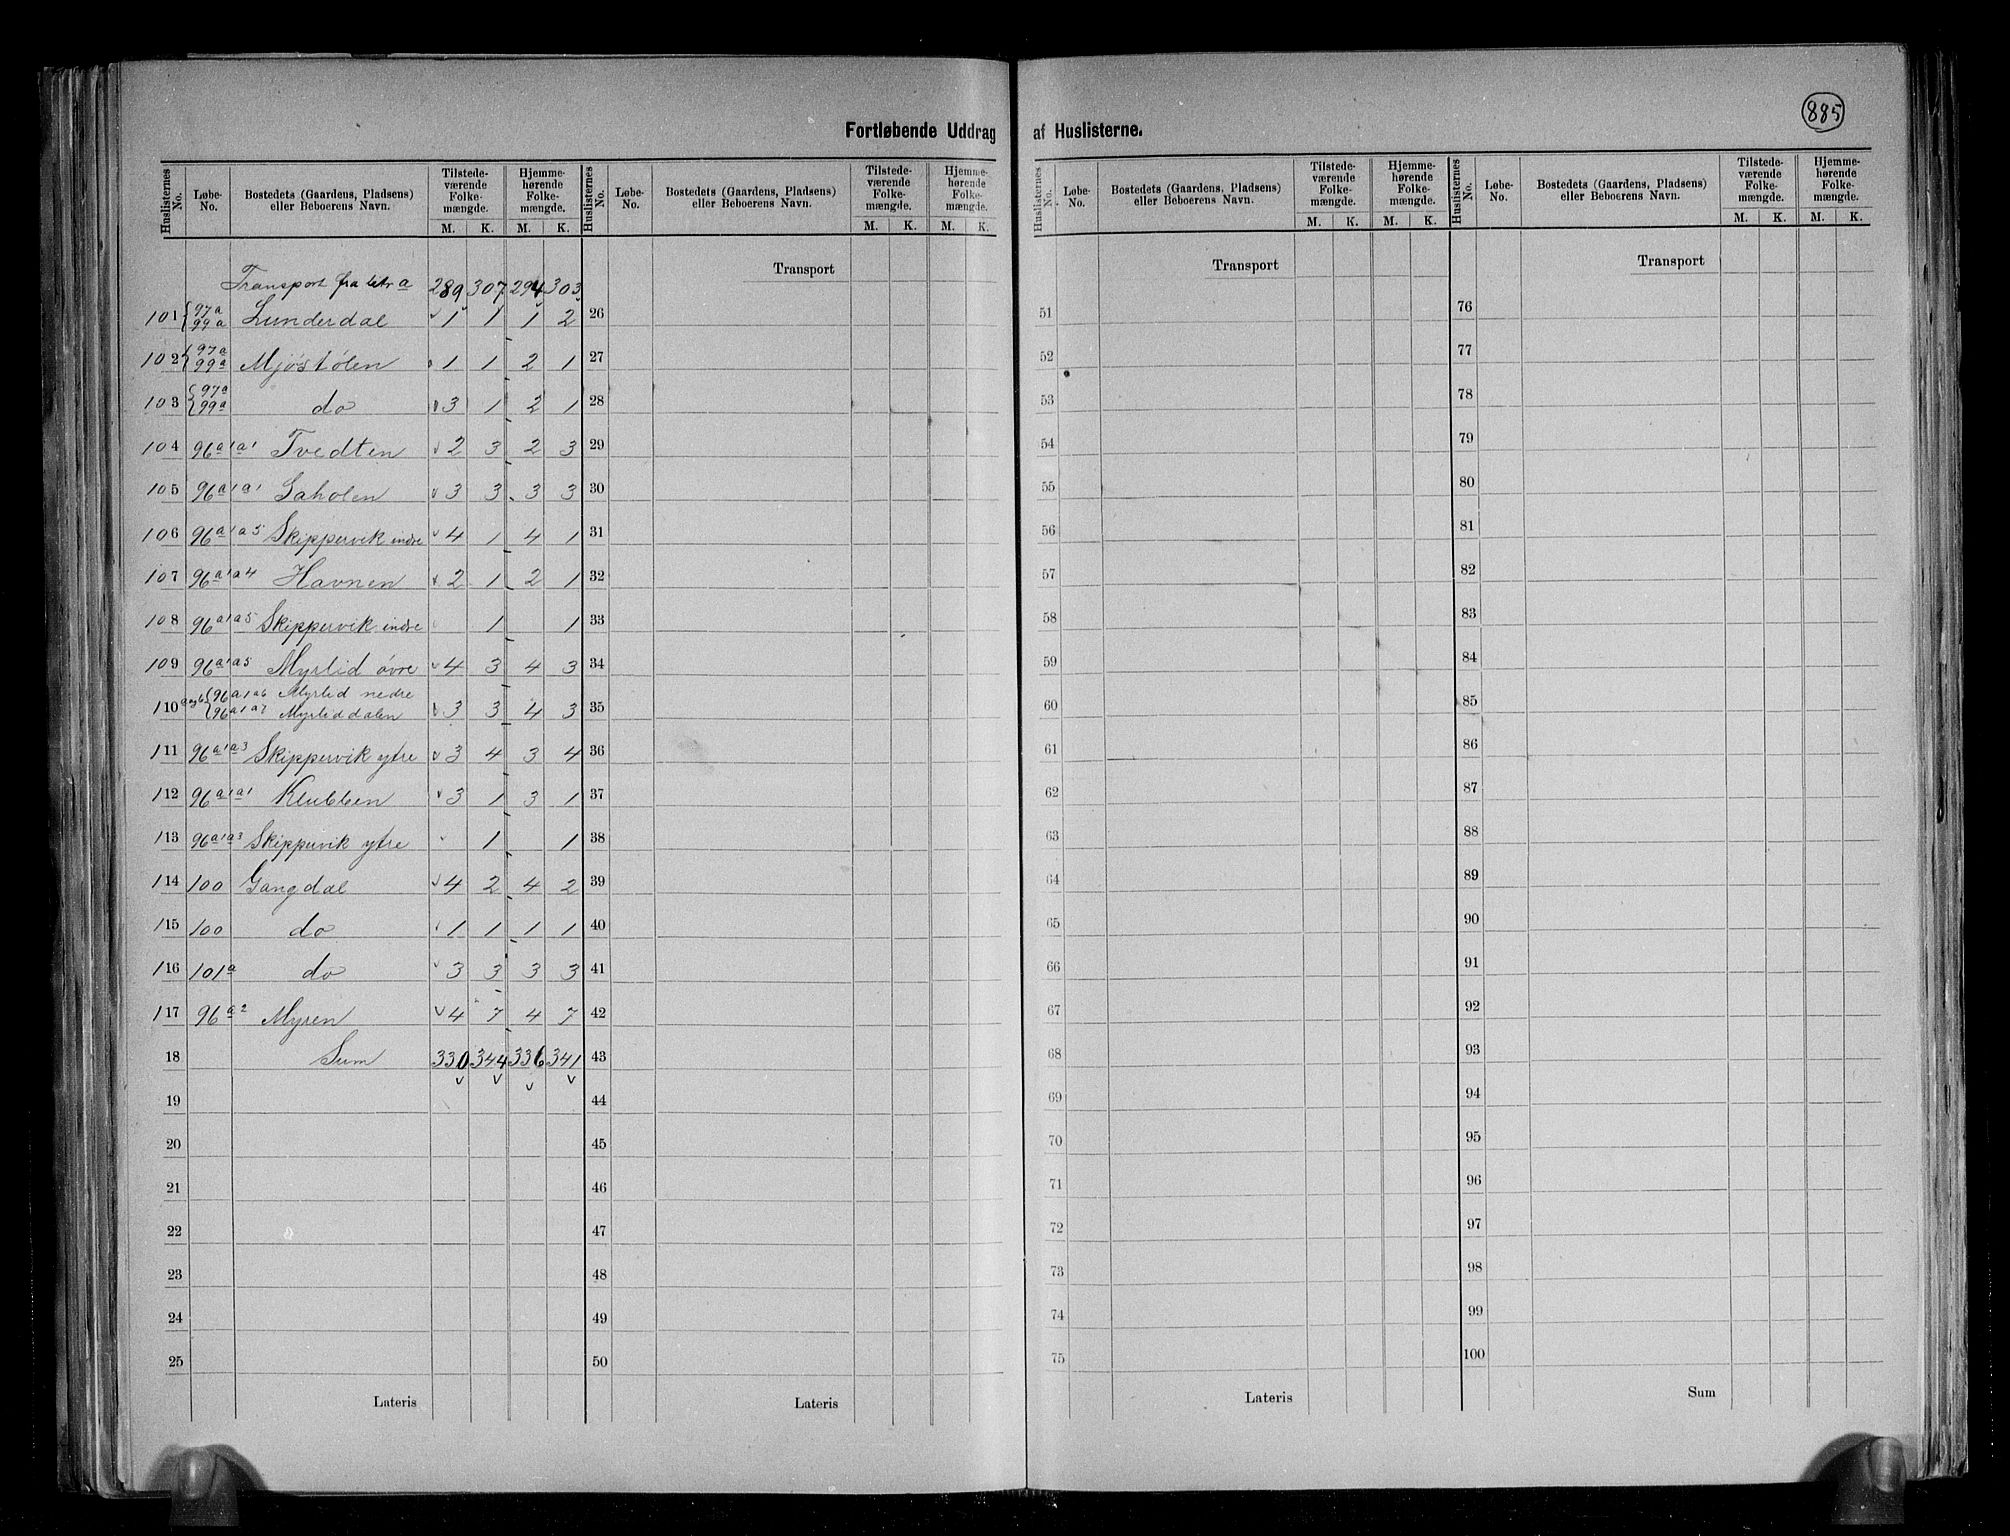 885
Fortløbende Uddrag af Huslisterne.
Huslisternes No. Løbe-No. Bostedets (Gaardens, Pladsens) eller Beboerens Navn. Tilstedeværende Folkemængde. M. K. Hjemmehørende Folkemængde. M. K.
Transport fra litr a 289 307 294 303
101 97a 99a Lunderdal 1 1 1 2
102 97a 99a Mjøstølen 1 1 2 1
103 97a 99a do 3 1 2 1
104 96a1a1 Tvedten 2 3 2 3
105 96a1a1 Laholen 3 3 3 3
106 96a1a5 Skippervik indre 4 1 4 1
107 96a1a4 Havnen 2 1 2 1
108 96a1a5 Skippervik indre 1 1
109 96a1a5 Myrlid øvre 4 3 4 3
110 a og b 96a1a6 Myrlid nedre
96a1a7 Myrliddalen 3 3 4 3
111 96a1a3 Skippervik ytre 3 4 3 4
112 96a1a1 Klubben 3 1 3 1
113 96a1a3 Skippervik ytre 1 1
114 100 Gangdal 4 2 4 2
115 100 do 1 1 1 1
116 101a do 3 3 3 3
117 96a2 Myren 4 7 4 7
18 Sum 330 344 336 341
19
20
21
22
23
24
25
Lateris
Huslisternes No. Løbe-No. Bostedets (Gaardens, Pladsens) eller Beboerens Navn. Tilstedeværende Folkemængde. M. K. Hjemmehørende Folkemængde. M. K.
Transport
26
27
28
29
30
31
32
33
34
35
36
37
38
39
40
41
42
43
44
45
46
47
48
49
50
Lateris
Huslisternes No. Løbe-No. Bostedets (Gaardens, Pladsens) eller Beboerens Navn. Tilstedeværende Folkemængde. M. K. Hjemmehørende Folkemængde. M. K.
Transport
51
52
53
54
55
56
57
58
59
60
61
62
63
64
65
66
67
68
69
70
71
72
73
74
75
Lateris
Huslisternes No. Løbe-No. Bostedets (Gaardens, Pladsens) eller Beboerens Navn. Tilstedeværende Folkemængde. M. K. Hjemmehørende Folkemængde. M. K.
Transport
76
77
78
79
80
81
82
83
84
85
86
87
88
89
90
91
92
93
94
95
96
97
98
99
100
Sum